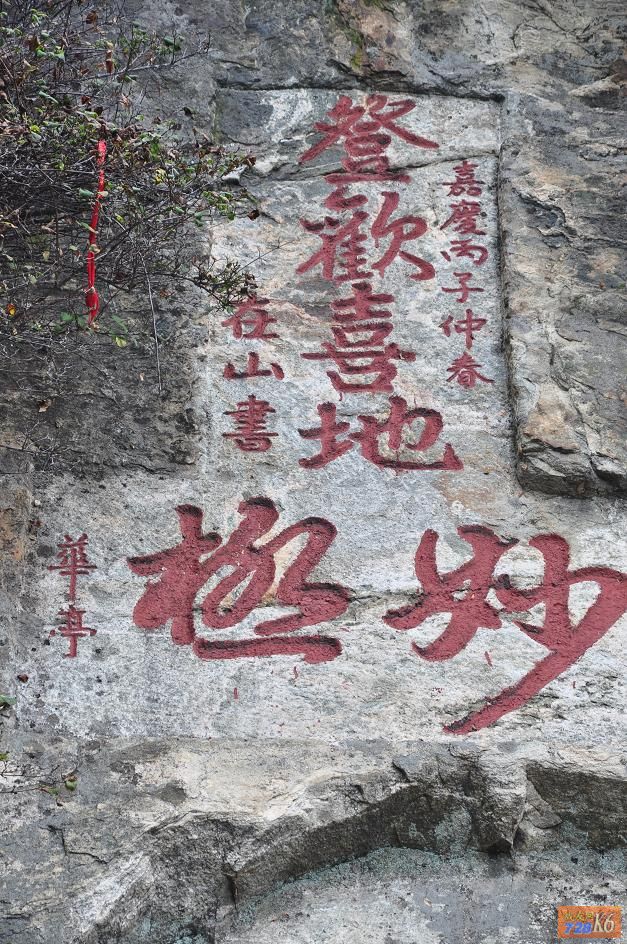 嘉慶丙子仲春
登歡喜地
在山書
妙極
華亭
720K6